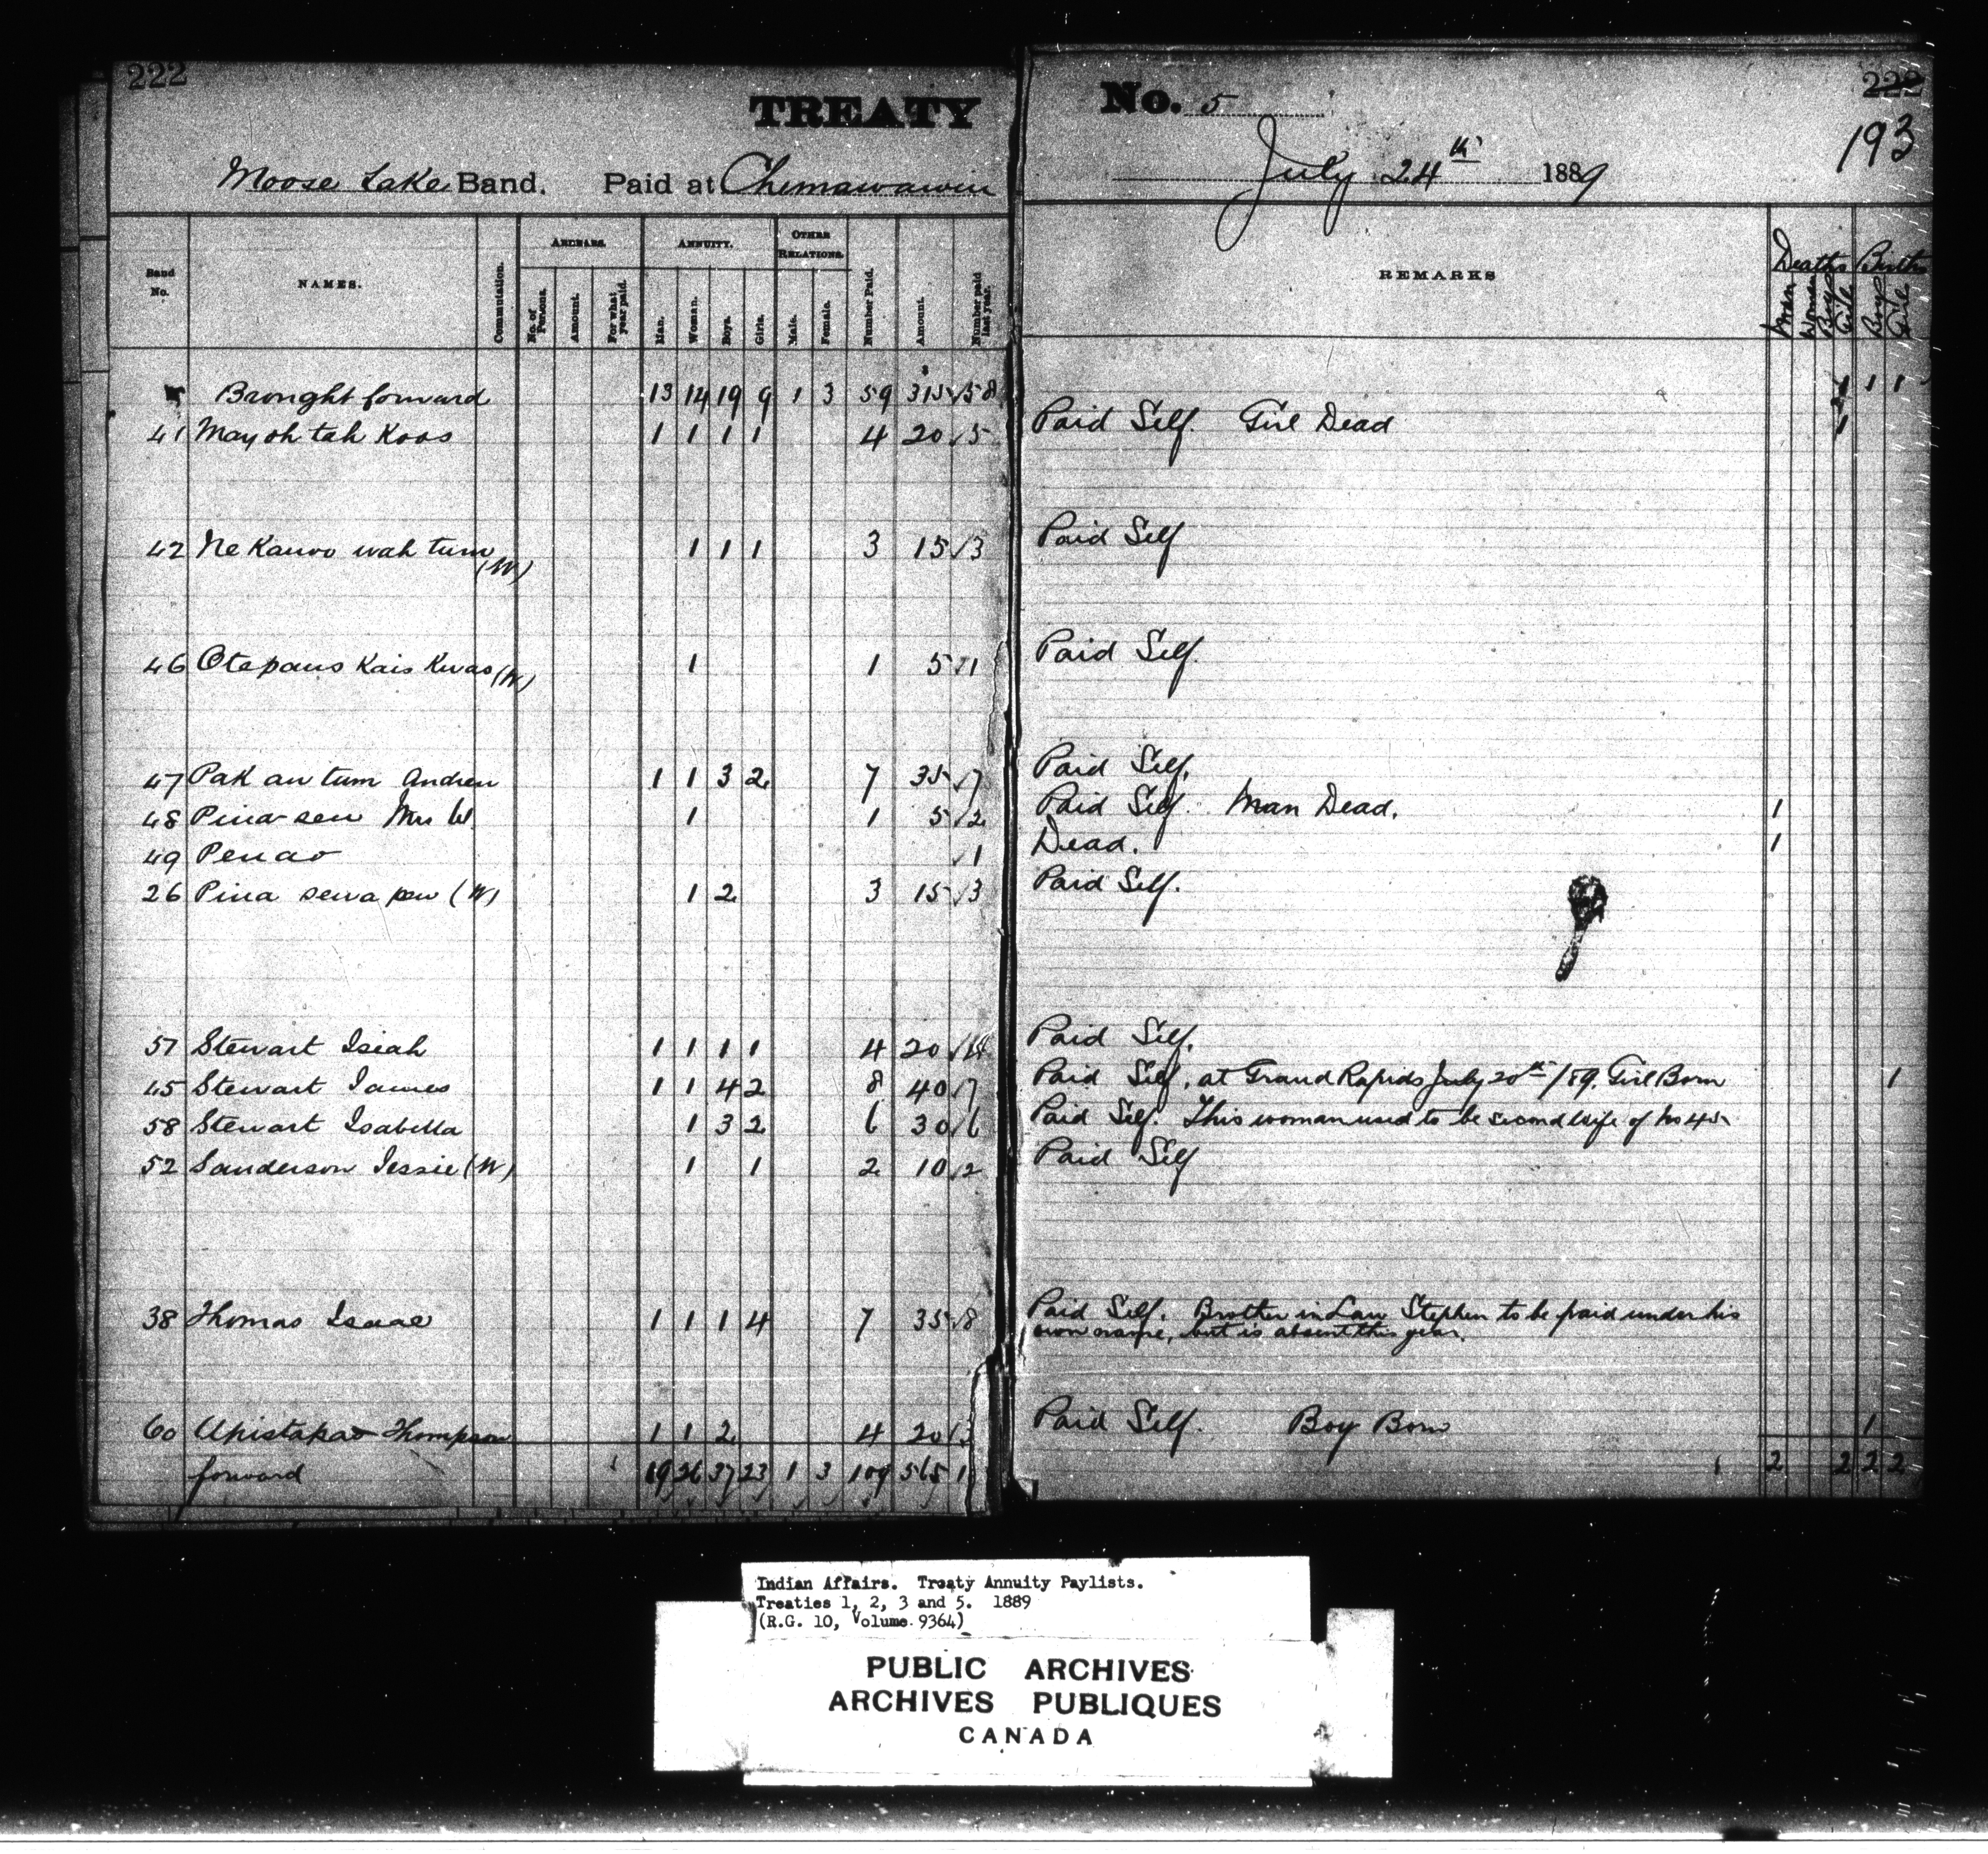 222
TREATY No. 5
222
193
Moose Lake Band. Paid at Chemawawin July 24th 1889
Band No. NAMES. Commutation. ARREARS. No. of Persons. Amount. For what year paid. ANNUITY. Man. Woman. Boys. Girls. OTHER RELATIONS. Male. Female. Number Paid. Amount. Number paid last year. REMARKS Deaths Man Woman Boys Girls Births Boys Girls
Brought forward 13 14 19 9 1 3 59 315 58 1 1 1
41 May oh tah Koos 1 1 1 1 4 20 5 Paid Self. Girl Dead 1
42 Ne Kauvo wah tum (W) 1 1 1 3 15 3 Paid Self
46 Otepaus Kais Kwas (W) 1 1 5 1 Paid Self.
47 Pak au tum Andrew 1 1 3 2 7 35 7 Paid Self.
48 Pina-sew Mrs W. 1 1 5 2 Paid Self. Man Dead. 1
49 Penao 1 Dead. 1
26 Pina sewa pew (W) 1 2 3 15 3 Paid Self.
57 Stewart Isiah 1 1 1 1 4 20 4 Paid Self.
45 Stewart James 1 1 4 2 8 40 7 Paid Self, at Grand Rapids July 20th /89. Girl Born 1
58 Stewart Isabella 1 3 2 6 30 6 Paid Self. This woman used to be second wife of No 45
52 Sanderson Jessie (W) 1 1 2 10 2 Paid Self
38 Thomas Isaac 1 1 1 4 7 35 8 Paid Self. Brother in Law Stephen to be paid under his
own name, but is absent this year.
60 Apistapao Thompson 1 1 2 4 20 3 Paid Self. Boy Born 1
forward 19 26 37 23 1 3 109 565 2 2 2 2
Indian Affairs. Treaty Annuity Paylists.
Treaties 1, 2, 3 and 5. 1889
(R.G. 10, Volume 9364)
PUBLIC ARCHIVES
ARCHIVES PUBLIQUES
CANADA